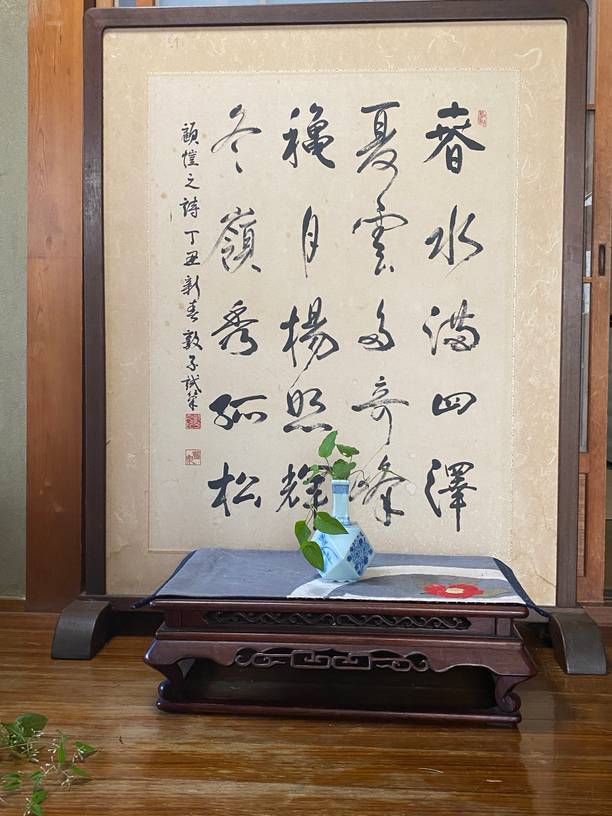 春水満四澤
夏雲多奇峰
穐月楊照輝
冬嶺秀孤松
顧愷之詩 丁丑新春 敦子試筆